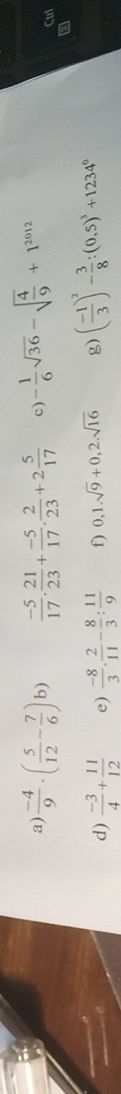 a) $\frac{-4}{9} \cdot \left(\frac{5}{12} - \frac{7}{6}\right)$ b) $\frac{-5}{17} \cdot \frac{21}{23} + \frac{-5}{17} \cdot \frac{2}{23} + 2\frac{5}{17}$ c) $-\frac{1}{6}\sqrt{36} - \sqrt{\frac{4}{9}} + 1^{2012}$
d) $\frac{-3}{4} + \frac{11}{12}$ e) $\frac{-8}{3} \cdot \frac{2}{11} - \frac{8}{3} : \frac{11}{9}$ f) $0,1.\sqrt{9} + 0,2.\sqrt{16}$ g) $\left(\frac{-1}{3}\right)^2 - \frac{3}{8} : (0,5)^3 + 1234^0$
Ctrl